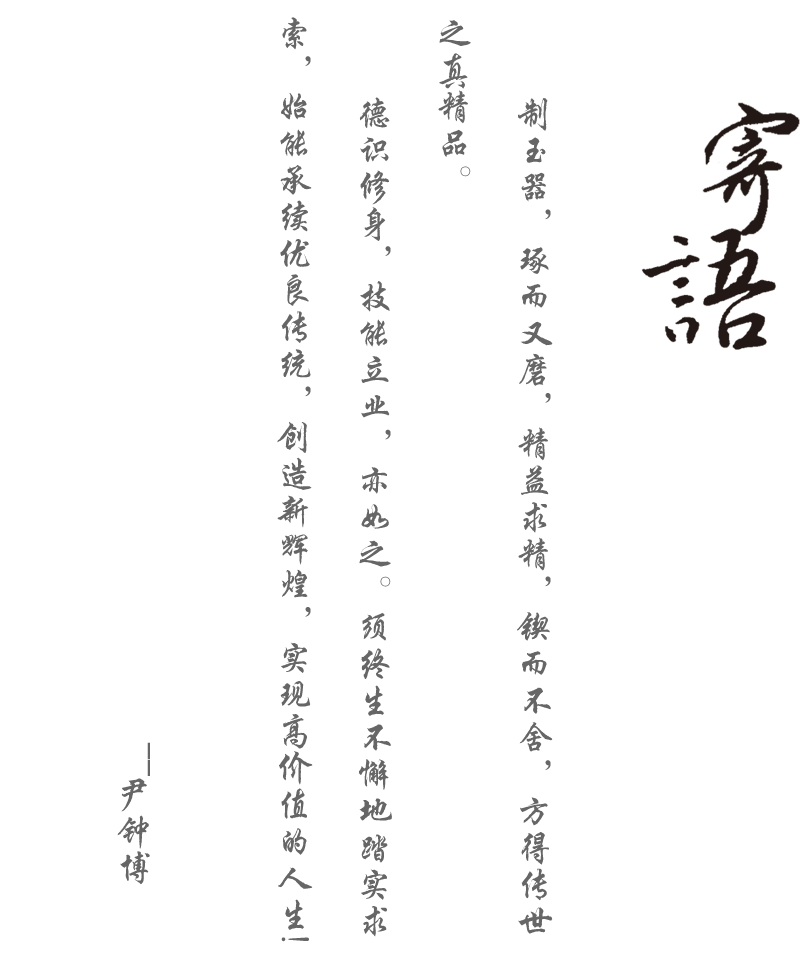 寄語
制玉器，琢而又磨，精益求精，锲而不舍，方得传世
之真精品。
德识修身，技能立业，亦如之。须终生不懈地踏实求
索，始能承续优良传统，创造新辉煌，实现高价值的人生
——尹钟博